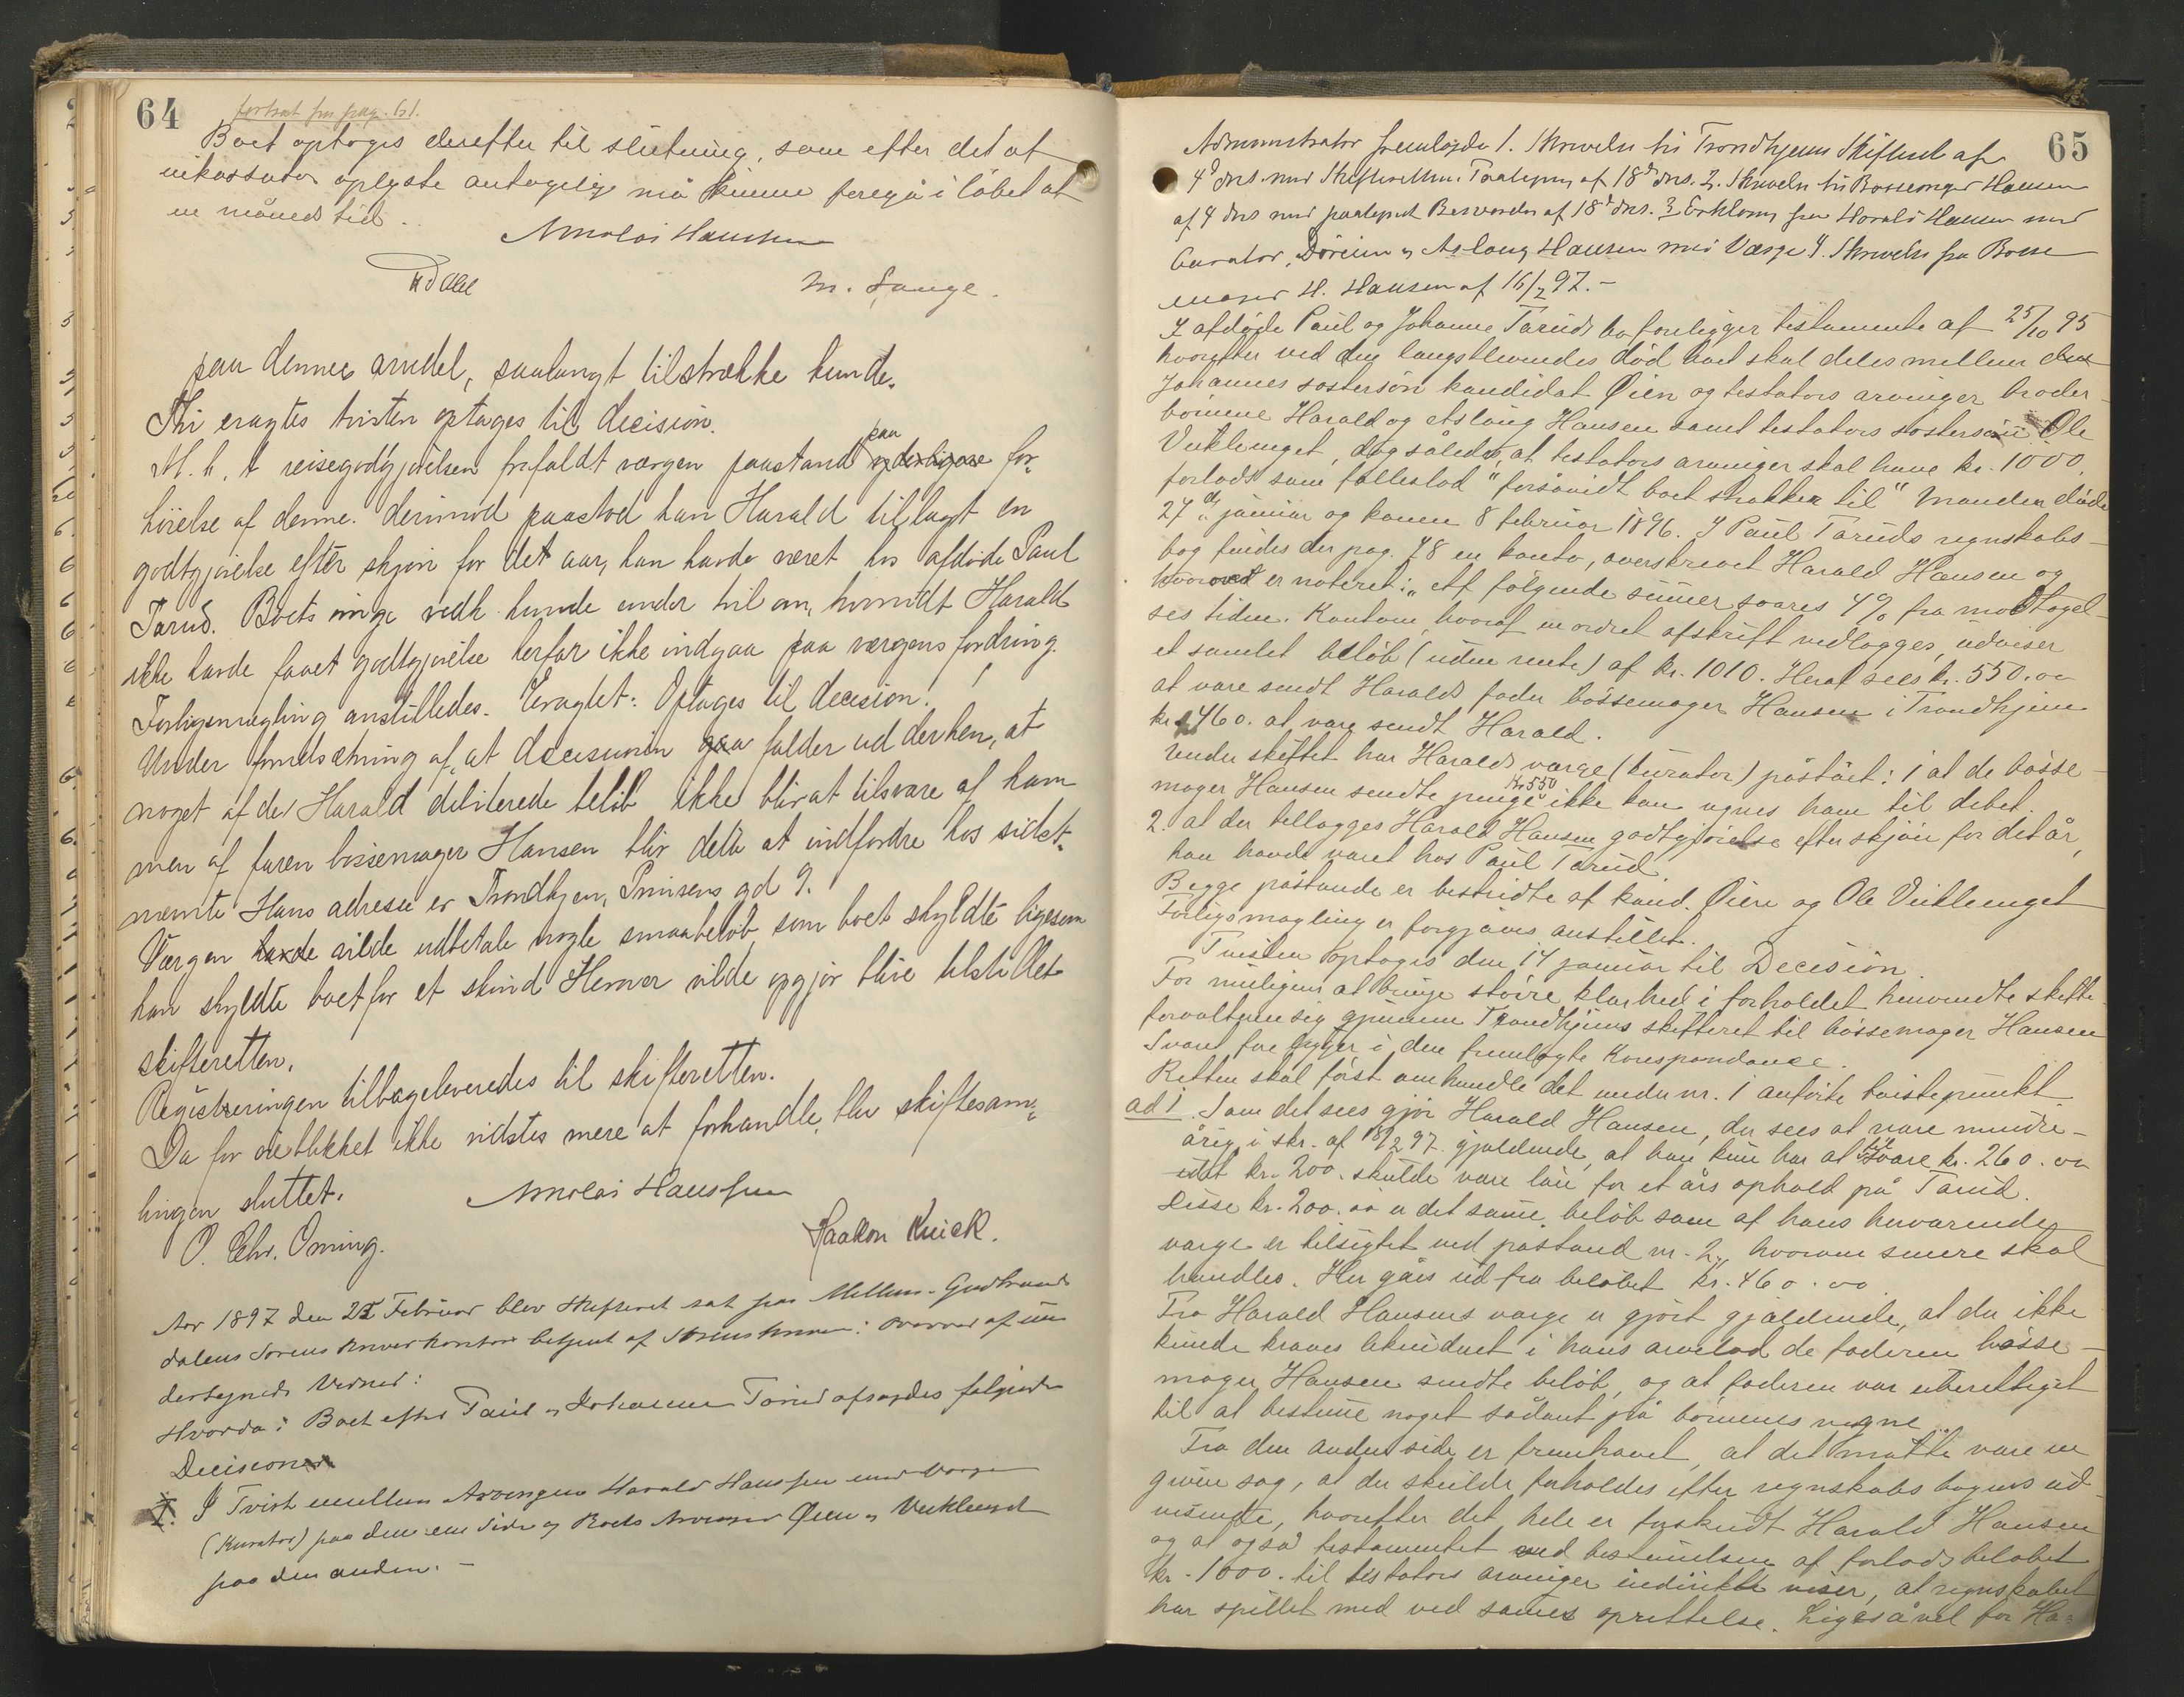 64
fortsat fra pag. 61.
Boet optoges derefter til slutning, som efter det at
inkassator oplyste antagelig må kunne foregå i løbet af
en måneds tid.
Nikolai Hanssen
M. Lange.
paa dennes andel, saalangt tilstrække kunde.
Thi eragtes tvisten optages til decision.
M. h. t. reisegodtgjørelsen frafaldt værgen paastand paa og derligere for,
hørelse af denne. Derimod paastod han Harald tillagt en
godtgjørelse efter skjøn for det aar, han havde været hos afdøde Paul
Tarud. Boets øvrige vedk. kunde under tvil om, hvorvidt Harald
ikke havde faaet godtgjørelse herfor ikke indgaa paa værgens fordring.
Forligsmægling anstilledes. Eragtet: Optages til decision.
Under forudsætning af, at decisionen gaa falder ud derhen, at
noget af de Harald debiterede beløb ikke blir at tilsvare af ham
men af faren bøssemager Hansen blir dette at indfordre hos sidst,
nævnte Hans adresse er Trondhjem, Prinsens gd 9.
Værgen havde vilde udbetale nogle smaabeløb, som boet skyldte ligesom
han skyldte boet for et skind Herover vilde opgjør blive tilstillet
skifteretten.
Registreringen tilbageleveredes til skifteretten.
Da for øieblikket ikke vidstes mere at forhandle, blev skiftesam,
lingen sluttet.
Nikolai Hanssen
O. Chr. Oming.
Haakon Kuick.
Aar 1897 den 22 Februar blev Skifteret sat paa Mellem-Gudbrands
dalens Sorenskriverkontor betjent af Sorenskriveren: overvær af un
dertegnede Vidner:
Hvorda: Boet efter Paul og Johanne Tarud afsagdes følgende
Decisioner
I. I Tvist mellem Arvingen Harald Hanssen med Værge
(Kurator) paa den ene Side og Boets Arvinger Øien og Veikleenget
paa den anden. -
65
Administrator fremlagde 1. Skrivelse til Trondhjems Skifteret af
4d dns. med Skifterettens Paategning af 18d dns. 2. Skrivelse til Bøssemager Hansen
af 4 dns med paategnet Besvarelse af 18d dns. 3 Erklæring fra Harald Hansen med
Curator, Dorium og Aslaug Hansen med Værge 4. Skrivelse fra Bøsse
mager H. Hansen af 16/2 97. -
I afdøde Paul og Johanne Taruds bo foreligger testamente af 25/10 95
hvorefter ved den længstlevendes død boet skal deles mellem den
Johannes søstersøn kandidat Øien og testators arvinger broder-
børnene Harald og Aslaug Hansen samt testators søstersøn Ole
Veikleenget, dog således, at testators arvinger skal have kr. 1000,
forlods som fælleslod "forsåvidt boet strækker til" Manden døde
27de januar og konen 8 februar 1896. I Paul Taruds regnskabs-
bog findes der pag. 78 en konto, overskrevet Harald Hansen og
hvorved er noteret: "Af følgende summer svares 4% fra modtagel-
ses tiden. Kontoen, hvoraf en ordret afskrift vedlægges, udviser
et samlet beløb (uden rente) af kr. 1010. Heraf sees kr. 550.00
at være sendt Haralds fader bøssemager Hansen i Trondhjem
kr. 460. at være sendt Harald.
Under skiftet har Haralds værge (kurator) påstået: 1 at de bøsse-
mager Hansen sendte penge Kr 550 ikke kan regnes ham til debet.
2. at der tillægges Harald Hansen godtgjørelse efter skjøn for det år,
han havde været hos Paul Tarud.
Begge påstande er bestridte af kand. Øien og Ole Veikleenget
Forligsmægling er forgjæves anstillet.
Tvisten optoges den 14 januar til Decision.
For muligens at bringe større klarhed i forholdet henvendte skifte-
forvalteren sig gjennem Trondhjems skifteret til bøssemager Hansen
Svaret foreligger i den fremlagte Korrespondance.
Retten skal først omhandle det under nr. 1 anførte tvistepunkt.
ad 1. Som det sees gjør Harald Hansen, der sees at være mindre-
årig, i skr. af 18/2 97 gjældende, at han kun har at tilsvare kr. 260.00
idet kr. 200. skulde være løn for et års ophold på Tarud.
Disse kr. 200.00 er det samme beløb som af hans herværende
værge er tilsigtet ved påstand nr. 2, hvorom senere skal
handles. Her gåes ud fra beløbet kr. 460.00
Fra Harald Hansens værge er gjort gjældende, at der ikke
kunde kræves likvideret i hans arvelod de faderen bøsse-
mager Hansen sendte beløb, og at faderen var uberettiget
til at bestemme noget sådant på børnenes vegne.
Fra den anden side er fremhævet, at det måtte være en
given sag, at der skulde forholdes efter regnskabs bogens ud-
visende, hvorefter det hele er forskudt Harald Hansen
og at også testamentet ved bestemmelsen af forlods beløbet
kr. 1000. til testators arvinger indirekte viser, at regnskabet
har spillet med ved sammes oprettelse. Ligesåvel for Ha=